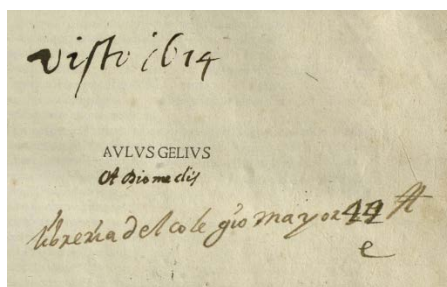 visto 1614
AVLVS GELIVS
et Diomedis
libreria del colegio mayor 44 A
e